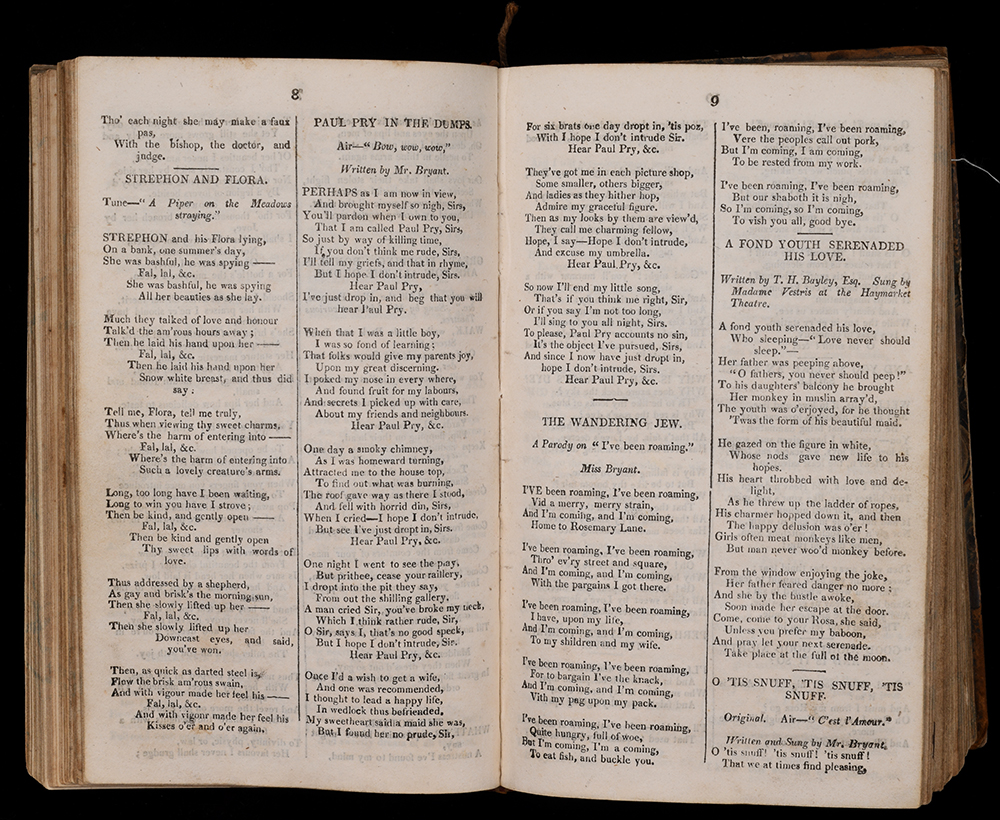 8
Tho' each night she may make a faux
pas,
With the bishop, the doctor, and
judge.
STREPHON AND FLORA.
Tune—" A Piper on the Meadows
straying."
STREPHON and his Flora lying,
On a bank, one summer's day,
She was bashful, he was spying ——
Fal, lal, &c.
She was bashful, he was spying
All her beauties as she lay.
Much they talked of love and honour
Talk'd the am'rous hours away;
Then he laid his hand upon her ——
Fal, lal, &c.
Then he laid his hand upon her
Snow white breast, and thus did
say:
Tell me, Flora, tell me truly,
Thus when viewing thy sweet charms,
Where's the harm of entering into ——
Fal, lal, &c.
Where's the harm of entering into
Such a lovely creature's arms.
Long, too long have I been waiting,
Long to win you have I strove;
Then be kind, and gently open ——
Fal, lal, &c.
Then be kind and gently open
Thy sweet lips with words of
love.
Thus addressed by a shepherd,
As gay and brisk's the morning sun,
Then she slowly lifted up her ——
Fal, lal, &c.
Then she slowly lifted up her
Downcast eyes, and said,
you've won.
Then, as quick as darted steel is,
Flew the brisk am'rous swain,
And with vigour made her feel his ——
Fal, lal, &c.
And with vigonr made her feel his
Kisses o'er and o'er again.
PAUL PRY IN THE DUMPS.
Air—" Bow, wow, wow,"
Written by Mr. Bryant.
PERHAPS as I am now in view,
And brought myself so nigh, Sirs,
You'll pardon when I own to you,
That I am called Paul Pry, Sirs,
So just by way of killing time,
If you don't think me rude, Sirs,
I'll tell my griefs, and that in rhyme,
But I hope I don't intrude, Sirs.
Hear Paul Pry,
I've just drop in, and beg that you will
hear Paul Pry.
When that I was a little boy,
I was so fond of learning;
That folks would give my parents joy,
Upon my great discerning.
I poked my nose in every where,
And found fruit for my labours,
And secrets I picked up with care,
About my friends and neighbours.
Hear Paul Pry, &c.
One day a smoky chimney,
As I was homeward turning,
Attracted me to the house top,
To find out what was burning,
The roof gave way as there I stood,
And fell with horrid din, Sirs,
When I cried—I hope I don't intrude,
But see I've just dropt in, Sirs.
Hear Paul Pry, &c.
One night I went to see the play,
But prithee, cease your raillery,
I dropt into the pit they say,
From out the shilling gallery.
A man cried Sir, you've broke my neck,
Which I think rather rude, Sir,
O Sir, says I, that's no good speck,
But I hope I don't intrude, Sir.
Hear Paul Pry, &c.
Once I'd a wish to get a wife,
And one was recommended,
I thought to lead a happy life,
In wedlock thus befriended,
My sweetheart said a maid she was,
But I found her no prude, Sir,
9
For six brats one day dropt in, 'tis poz,
With I hope I don't intrude Sir.
Hear Paul Pry, &c.
They've got me in each picture shop,
Some smaller, others bigger,
And ladies as they hither hop,
Admire my graceful figure.
Then as my looks by them are view'd,
They call me charming fellow,
Hope, I say—Hope I don't intrude,
And excuse my umbrella.
Hear Paul Pry, &c.
So now I'll end my little song,
That's if you think me right, Sir,
Or if you say I'm not too long,
I'll sing to you all night, Sirs.
To please, Paul Pry accounts no sin,
It's the object I've pursued, Sirs,
And since I now have just dropt in,
hope I don't intrude, Sirs.
Hear Paul Pry, &c.
THE WANDERING JEW.
A Parody on " I've been roaming."
Miss Bryant.
I'VE been roaming, I've been roaming,
Vid a merry, merry strain,
And I'm coming, and I'm coming,
Home to Rosemary Lane.
I've been roaming, I've been roaming,
Thro' ev'ry street and square,
And I'm coming, and I'm coming,
With the pargains I got there.
I've been roaming, I've been roaming,
I have, upon my life,
And I'm coming, and I'm coming,
To my shildren and my wife.
I've been roaming, I've been roaming,
For to bargain I've the knack,
And I'm coming, and I'm coming,
Vith my pag upon my pack.
I've been roaming, I've been roaming,
Quite hungry, full of woe,
But I'm coming, I'm a coming,
To eat fish, and buckle you.
I've been, roaming, I've been roaming,
Vere the peoples call out pork,
But I'm coming, I am coming,
To be rested from my work.
I've been roaming, I've been roaming,
But our shaboth it is nigh,
So I'm coming, so I'm coming,
To vish you all, good bye.
A FOND YOUTH SERENADED
HIS LOVE.
Written by T. H. Bayley, Esq. Sung by
Madame Vestris at the Haymarket
Theatre.
A fond youth serenaded his love,
Who sleeping—" Love never should
sleep."—
Her father was peeping above,
" O fathers, you never should peep!"
To his daughters' balcony he brought
Her monkey in muslin array'd,
The youth was o'erjoyed, for he thought
'Twas the form of his beautiful maid.
He gazed on the figure in white,
Whose nods gave new life to his
hopes.
His heart throbbed with love and de-
light,
As he threw up the ladder of ropes,
His charmer hopped down it, and then
The happy delusion was o'er!
Girls often meat monkeys like men,
But man never woo'd monkey before.
From the window enjoying the joke,
Her father feared danger no more;
And she by the bustle awoke,
Soon made her escape at the door.
Come, come to your Rosa, she said,
Unless you prefer my baboon,
And pray let your next serenade.
Take place at the full of the moon.
O 'TIS SNUFF, 'TIS SNUFF, 'TIS
SNUFF.
Original. Air—" C'est l'Amour."
Written and Sung by Mr. Bryant.
O 'tis snuff! 'tis snuff! 'tis snuff!
That we at times find pleasing,